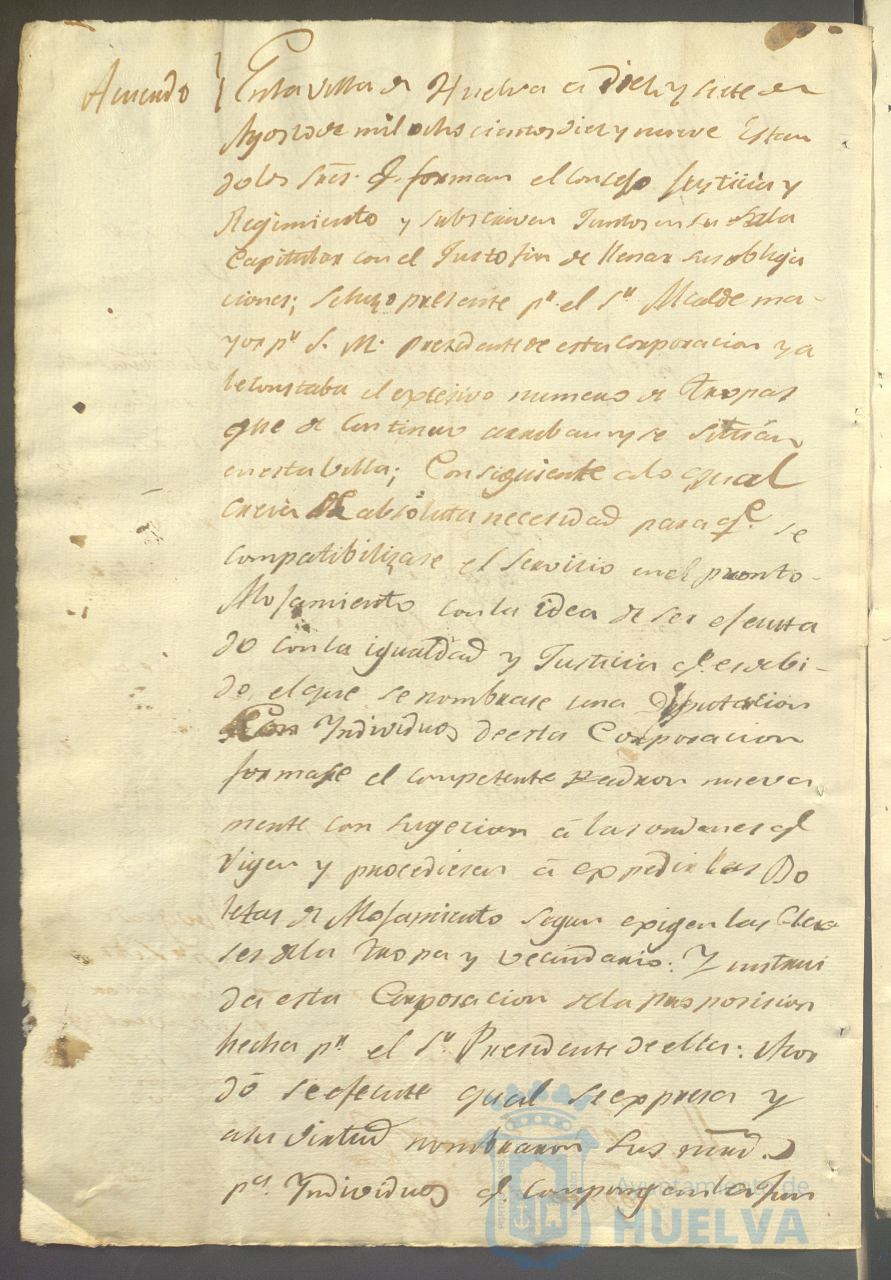 Acuerdo } En la villa de Huelva a Diez y siete de
Agosto de mil ochocientos diez y nueve Estan
do los Sres. q. forman el concejo Justicia y
Regimiento y subscriven Juntos en su Sala
Capitular con el Justo fin de llenar sus obliga
ciones; se hizo presente pr. el Sr. Alcalde ma-
yor pr. S. M. presidente de esta corporacion ya
le constaba el excesivo numero de tropas
que de continuo arriban y se sitúan
en esta villa; Consiguiente a lo qual
creia de absoluta necesidad para qe. se
compatibilizase el servicio en el pronto-
Alojamiento con la idea de ser ejecuta
do con la igualdad y Justicia q. es debi-
do, el que se nombrase una Diputacion
Con Individuos de esta Corporacion
formase el competente padron nueva
mente con sugecion á las ordenes q
vigen y procediesen á expedir las Bo
letas de Alojamiento segun exigen las Cla
ses de la tropa y vecindario: Y instrui
da esta Corporacion de la proposicion
hecha pr. el Sr. Presidente de ella: Acor
dó se efectue qual se expresa y
a su virtud nombraron sus mrd.
pa. Individuos q. compongan la Jun
Ayuntamiento de
HUELVA